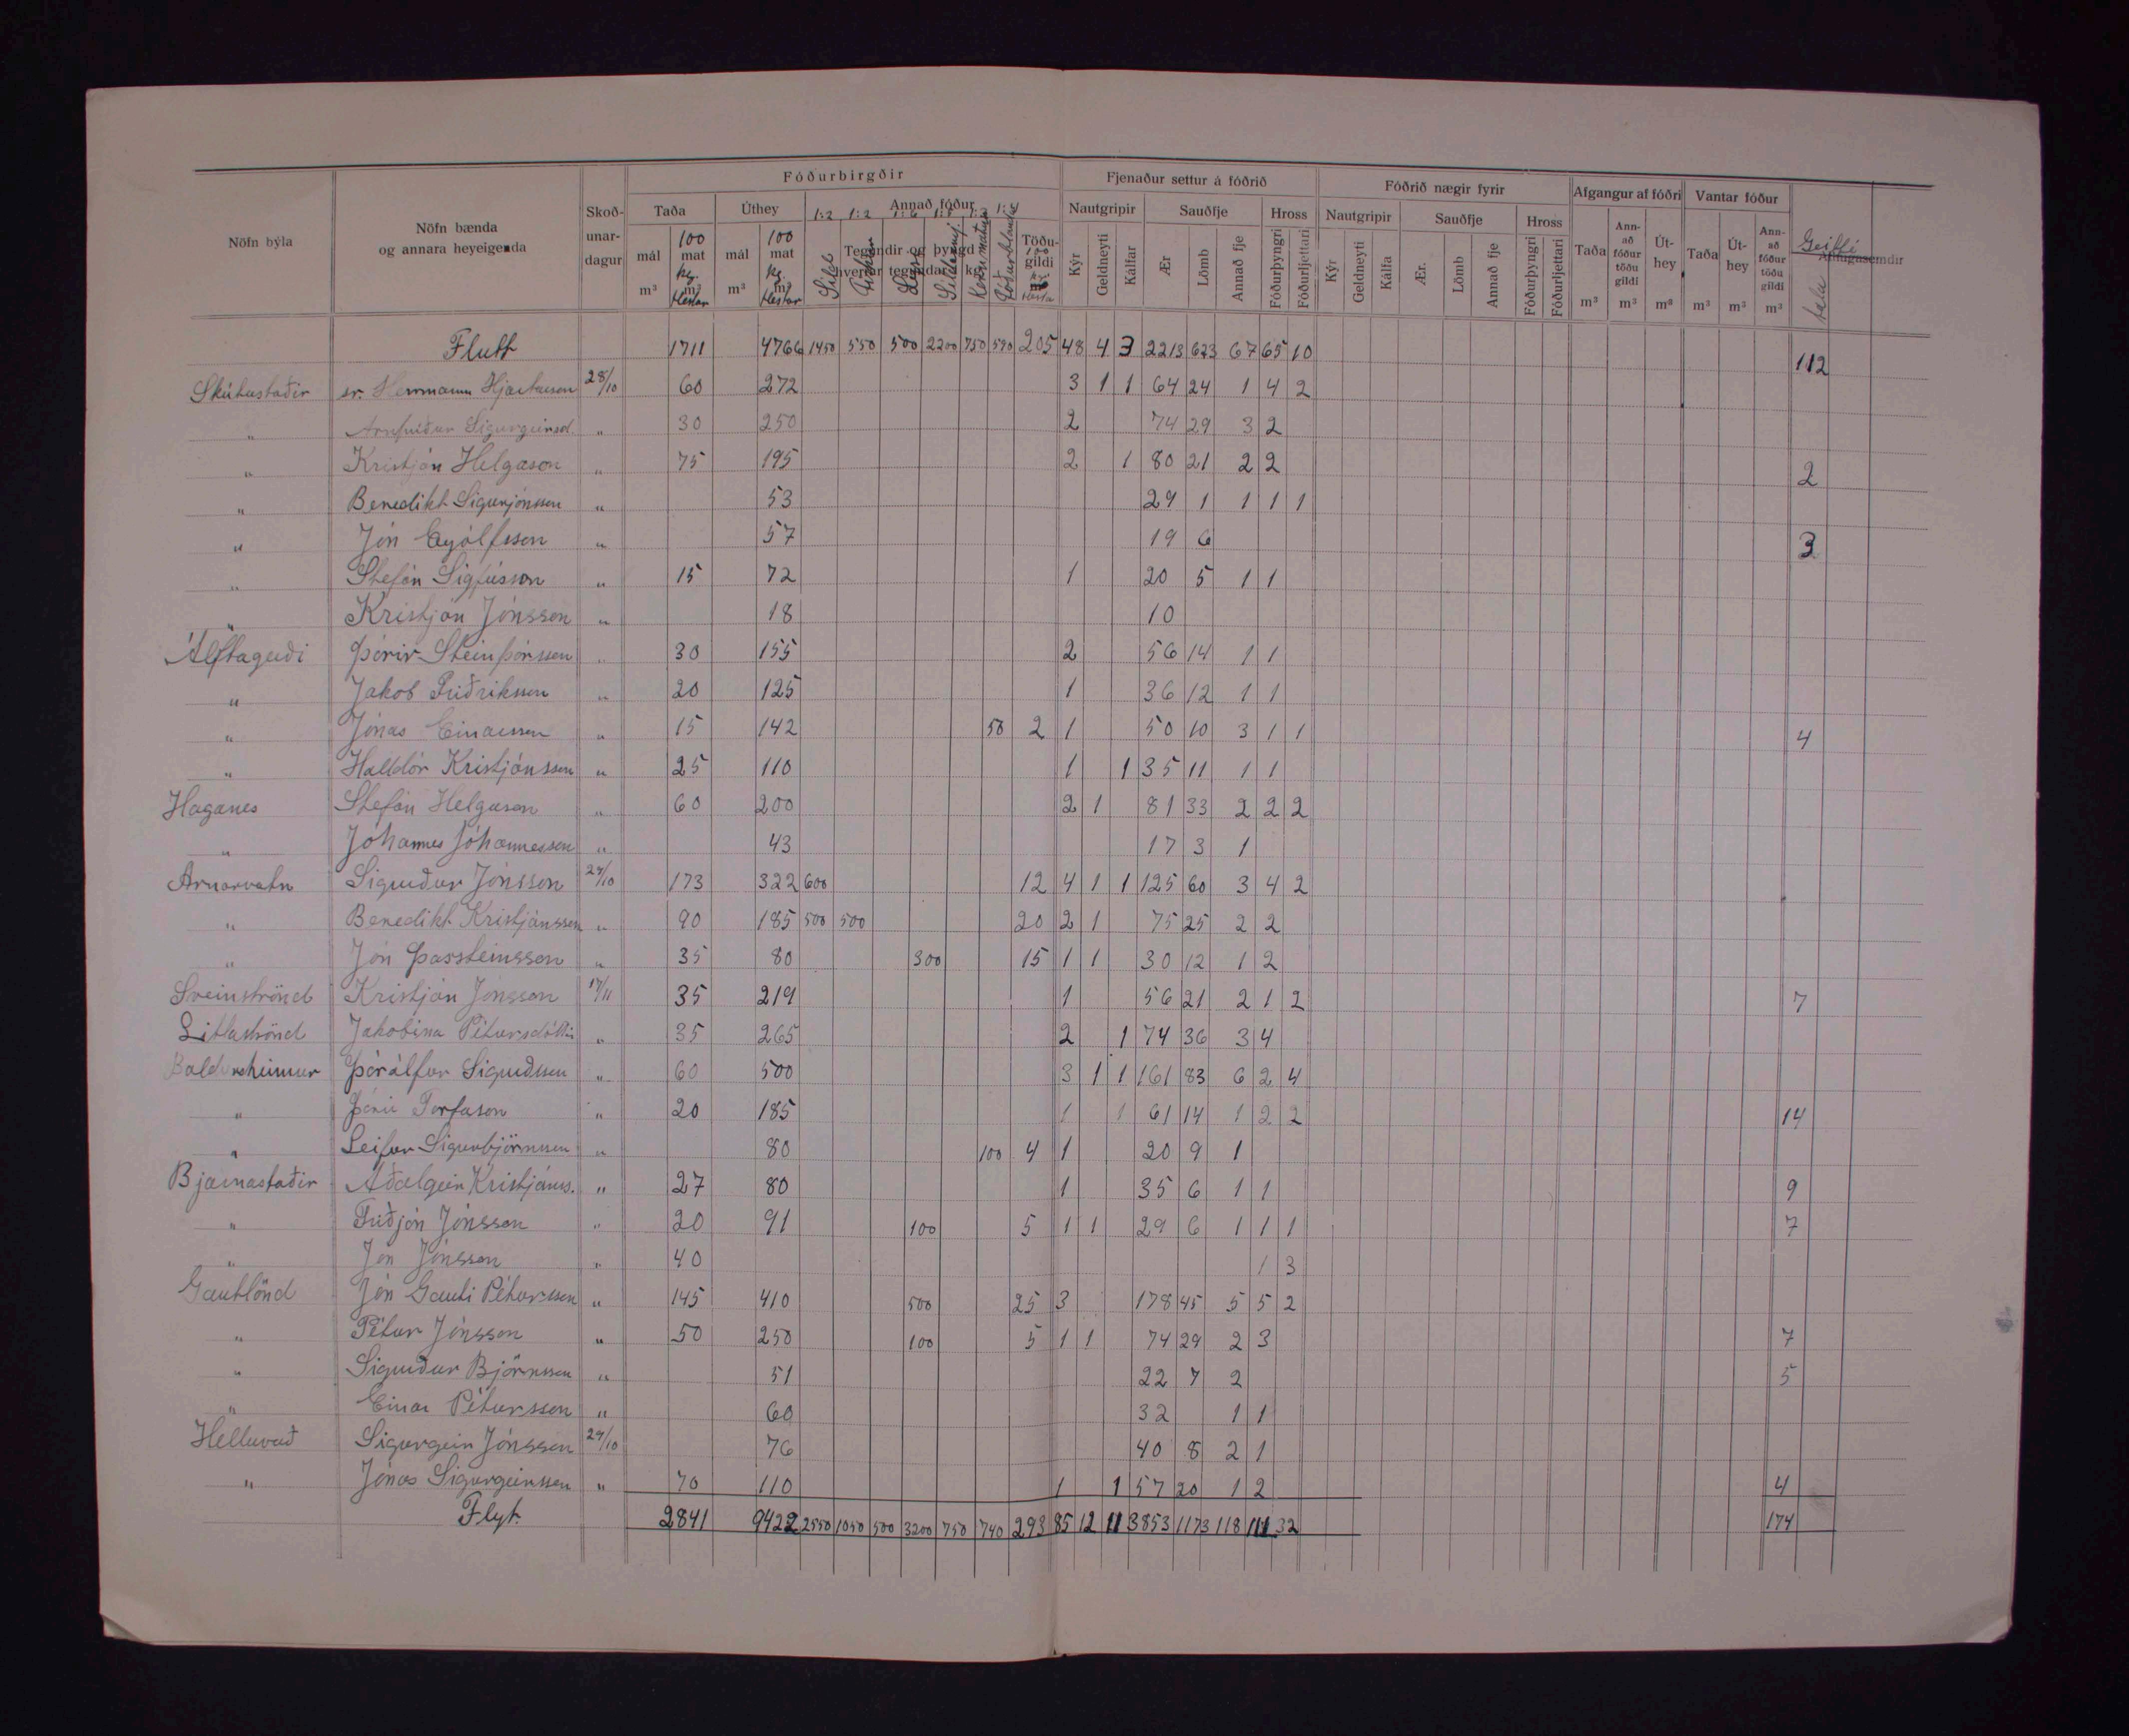 Fóðurbirgðir Fjenaður settur á fóðrið Fóðrið nægir fyrir Afgangur af fóðri Vantar fóður
Nöfn býla Nöfn bænda og annara heyeigenda Skoð-unar-dagur Taða Úthey Annað fóður Nautgripir Sauðfje Hross Nautgripir Sauðfje Hross
1:2 1:2 1:6 1:5
mál m³ 100 mat kg. m³ Hestar mál m³ 100 mat kg. m³ Hestar Tegundir og þyngd hverrar tegundar í kg. Síld Lýsi Síldarmj. Kornmatur Fóðurblanda Töðu-gildi 100 kg Hestar Kýr Geldneyti Kálfar Ær Lömb Annað fje Fóðurþyngri Fóðurljettari Kýr Geldneyti Kálfa Ær. Lömb Annað fje Fóðurþyngri Fóðurljettari Taða m³ Ann-að fóður töðu gildi m³ Út-hey m³ Taða m³ Út-hey m³ Ann-að fóður töðu gildi m³ Geitfé tala Athugasemdir
Flutt 1711 4766 1450 550 500 2200 750 590 205 48 4 3 2213 623 67 65 10 112
Skútustaðir sr. Hermann Hjartarson 28/10 60 272 3 1 1 64 24 1 4 2
" Arnfríður Sigurgeirsd. " 30 250 2 74 29 3 2
" Kristján Helgason " 75 195 2 1 80 21 2 2 2
" Benedikt Sigurjónsson " 53 29 1 1 1 1
" Jón Eyjólfsson " 57 19 6 3
" Stefán Sigfússon " 15 72 1 20 5 1 1
" Kristján Jónsson " 18 10
Álftagerði Þórir Steinþórsson " 30 155 2 56 14 1 1
" Jakob Friðriksson 20 125 1 36 12 1 1
" Jónas Einarsson " 15 142 50 2 1 50 10 3 1 1 4
" Halldór Kristjánsson " 25 110 1 1 35 11 1 1
Haganes Stefán Helgason " 60 200 2 1 81 33 2 2 2
" Jóhannes Jóhannesson " 43 17 3 1
Arnarvatn Sigurður Jónsson 29/10 173 322 600 12 4 1 1 125 60 3 4 2
" Benedikt Kristjánsson " 90 185 500 500 20 2 1 75 25 2 2
" Jón Þorsteinsson " 35 80 300 15 1 1 30 12 1 2
Sveinströnd Kristján Jónsson 17/11 35 219 1 56 21 2 1 2 7
Litlaströnd Jakobína Pétursdóttir " 35 265 2 1 74 36 3 4
Baldursheimur Þórálfur Sigurðsson " 60 500 3 1 1 161 83 6 2 4
" Þórir Torfason 20 185 1 1 61 14 1 2 2 14
" Leifur Sigurbjörnsson " 80 100 4 1 20 9 1
Bjarnastaðir Aðalgeir Kristjáns. " 27 80 1 35 6 1 1 9
" Friðjón Jónsson " 20 91 100 5 1 1 29 6 1 1 1 7
" Jón Jónsson " 40 1 3
Gautlönd Jón Gauti Pétursson " 145 410 500 25 3 178 45 5 5 2
" Pétur Jónsson " 50 250 100 5 1 1 74 29 2 3 7
" Sigurður Björnsson " 51 22 7 2 5
" Einar Pétursson " 60 32 1 1
Helluvað Sigurgeir Jónsson 29/10 76 40 8 2 1
" Jónas Sigurgeirsson " 70 110 1 1 57 20 1 2 4
Flyt. 2841 9422 2550 1050 500 3200 750 740 293 85 12 11 3853 1173 118 111 32 174